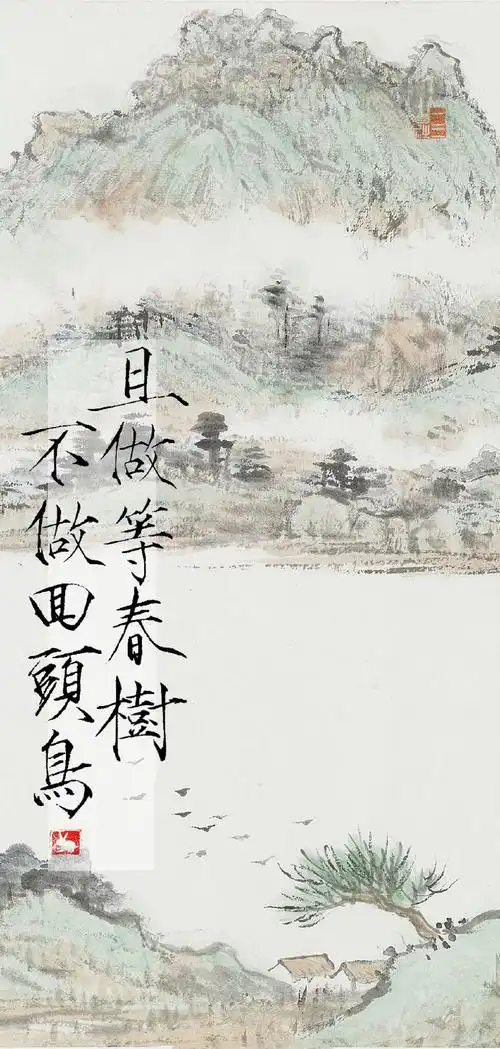 且做等春樹
不做回頭鳥